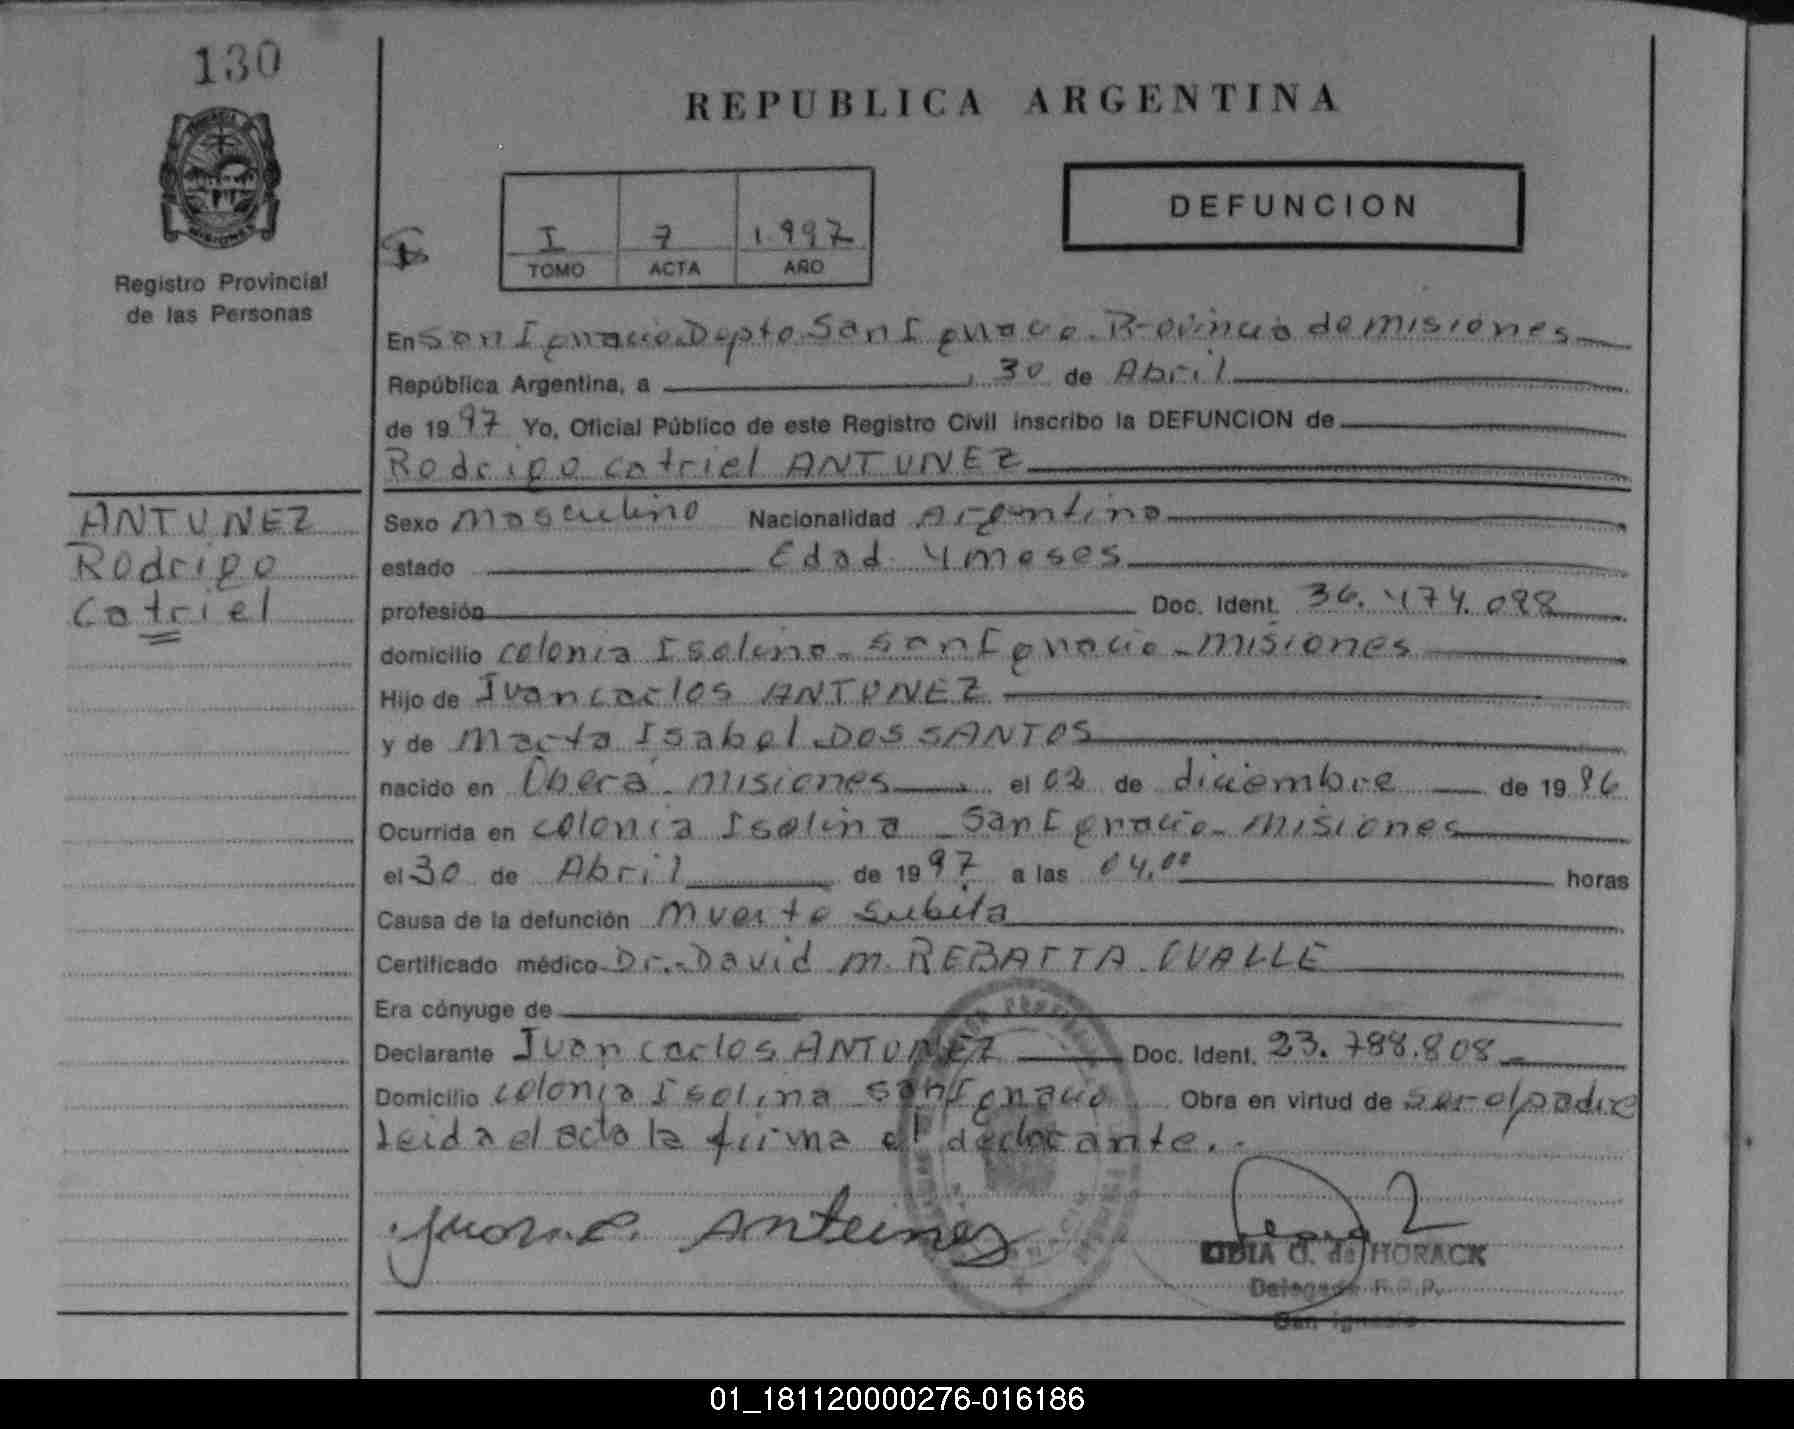 130
REPUBLICA ARGENTINA
DEFUNCION
I 7 1.997
TOMO ACTA AÑO
MISIONES
Registro Provincial
de las Personas
En San Ignacio Depto San Ignacio. Provincia de misiones
República Argentina, a , 30 de Abril
de 1997 Yo, Oficial Público de este Registro Civil inscribo la DEFUNCION de
Rodrigo Catriel ANTUNEZ
ANTUNEZ
Rodrigo
Catriel
Sexo Masculino Nacionalidad Argentina
estado Edad 4 meses
profesión Doc. Ident. 36.474.098
domicilio colonia Isolina - San Ignacio - misiones
Hijo de Juan Carlos ANTUNEZ
y de Marta Isabel DOS SANTOS
nacido en Oberá - misiones , el 02 de diciembre de 1996
Ocurrida en colonia Isolina - San Ignacio - misiones
el 30 de Abril de 1997 a las 04,00 horas
Causa de la defunción Muerte Subita
Certificado médico Dr.- David M. REBATTA OVALLE
Era cónyuge de
Declarante Juan Carlos ANTUNEZ Doc. Ident. 23.788.808
Domicilio colonia Isolina San Ignacio Obra en virtud de ser el padre
Leida el acta la firma el declarante.-
Juan C. Antunez
LIDIA O. de HORACK
Delegada R.P.P.
San Ignacio
01_181120000276-016186